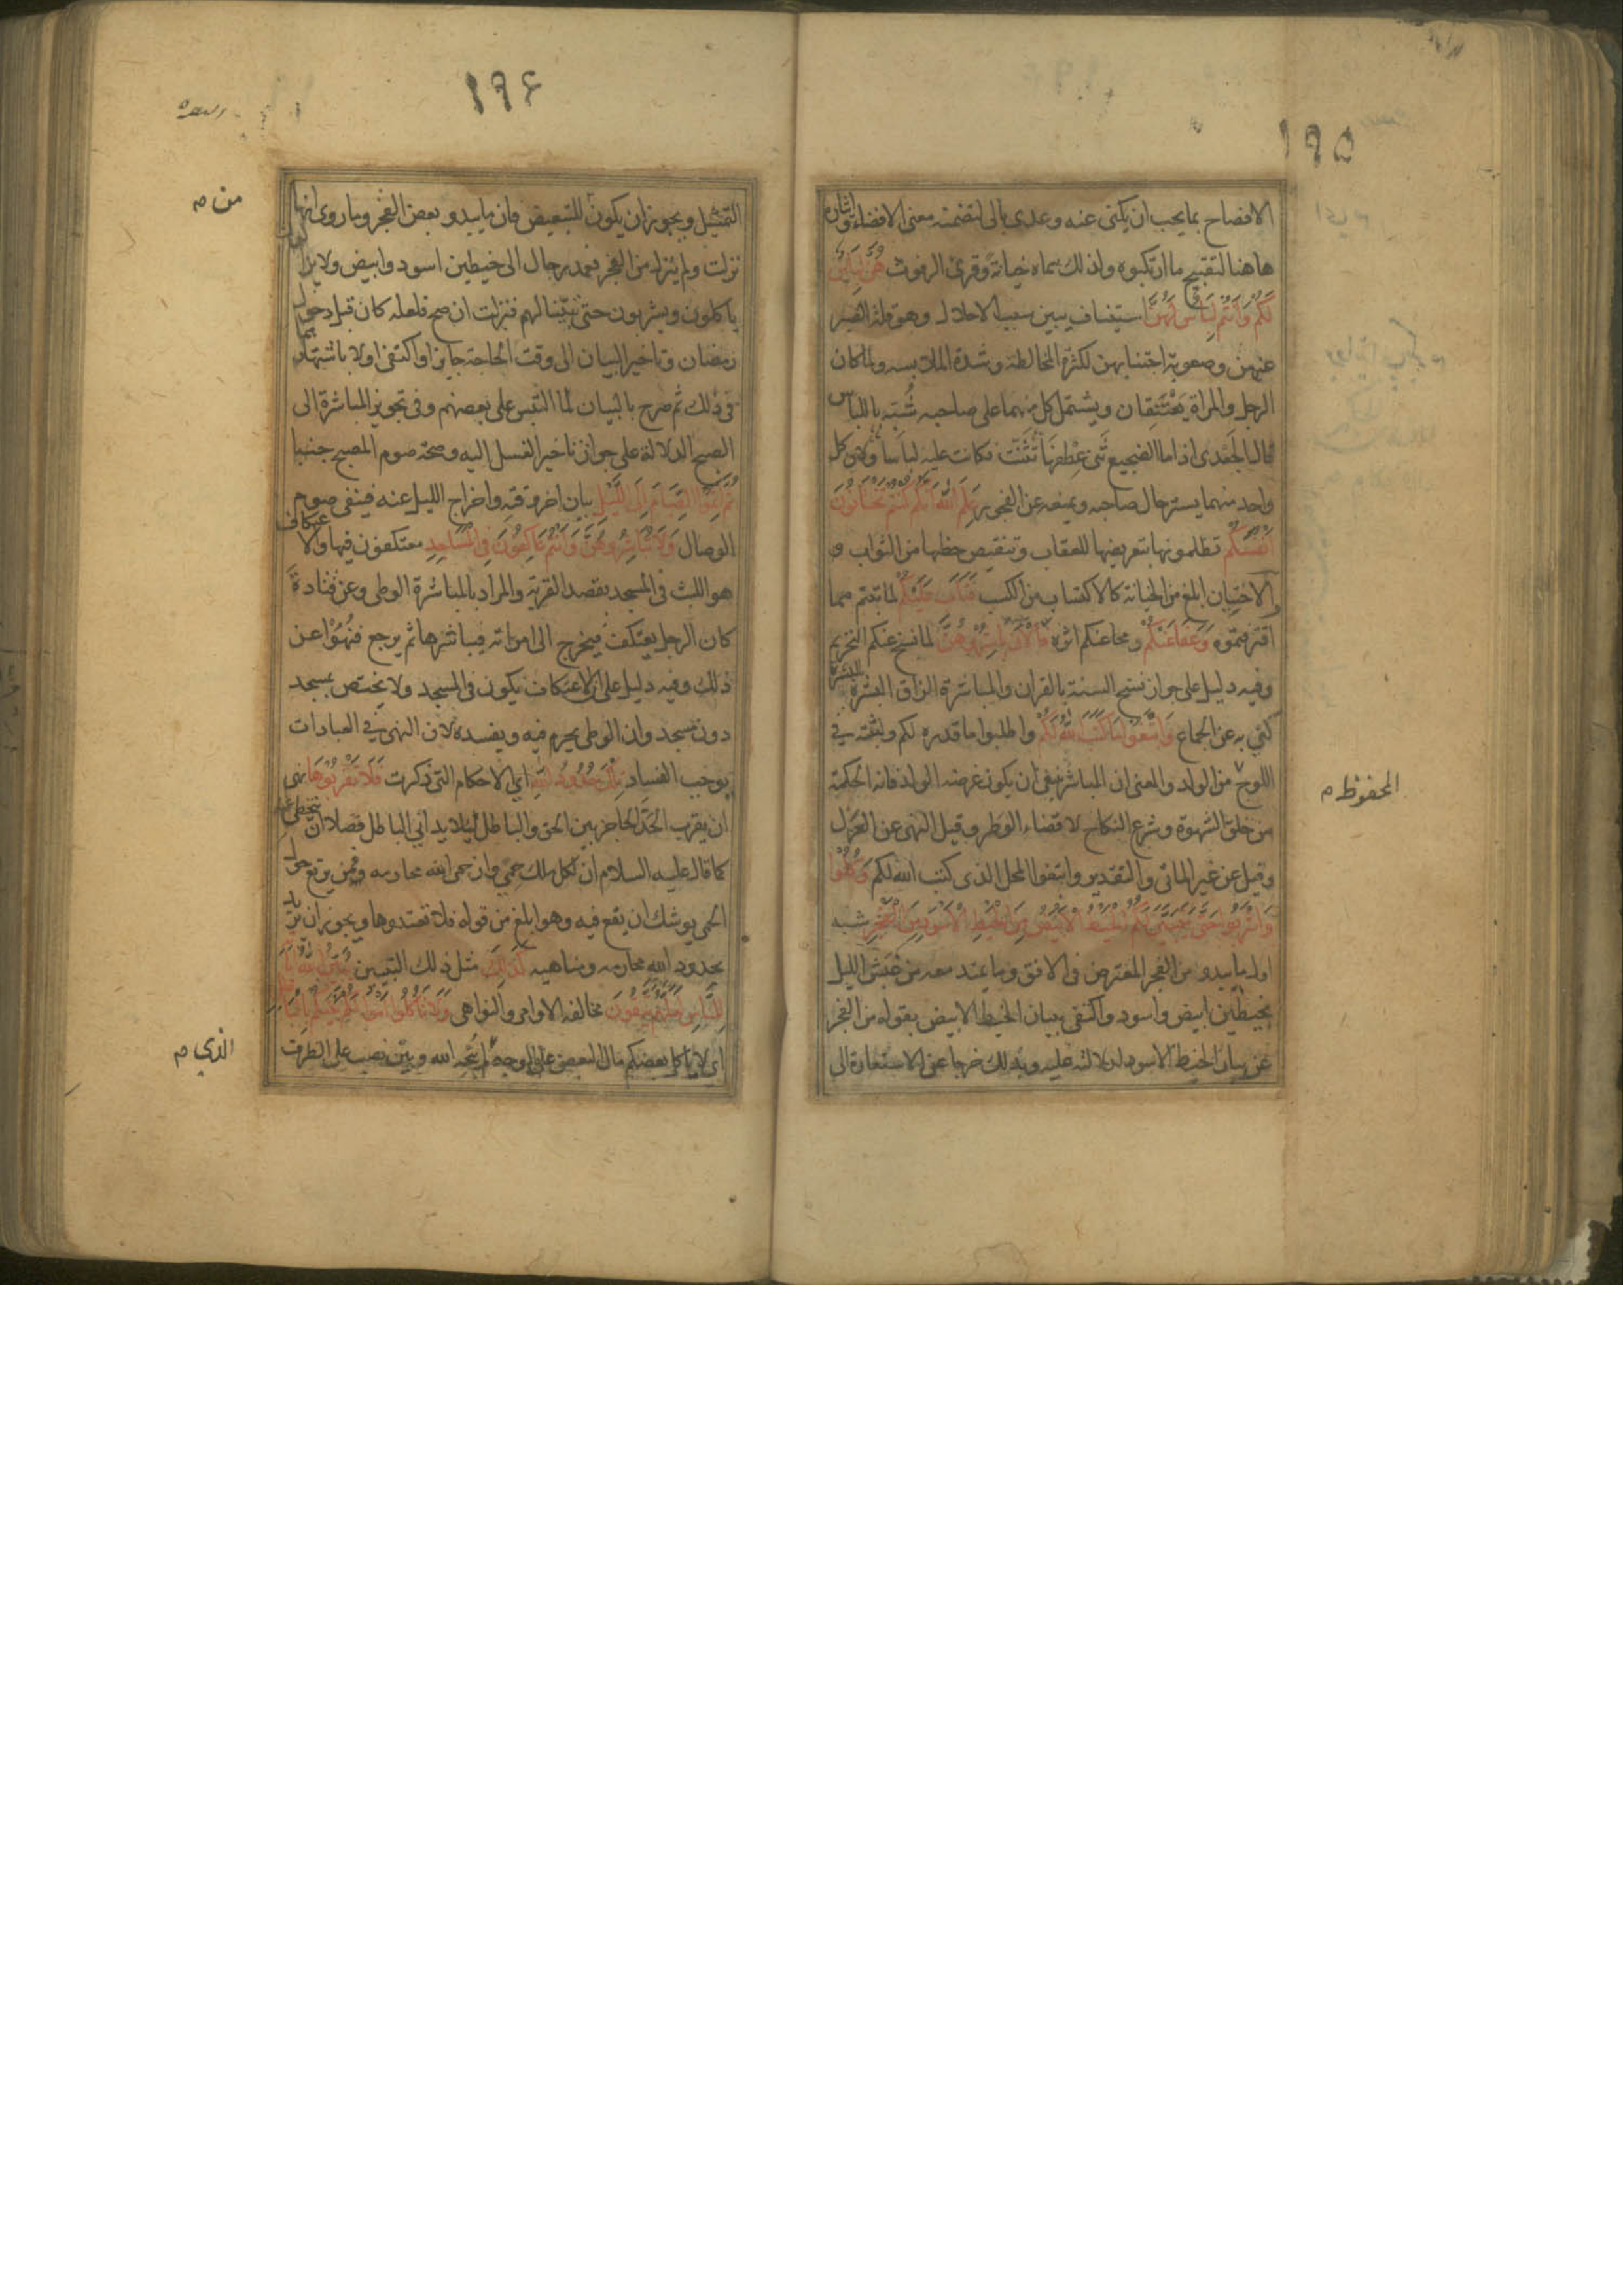 ١٩٥
الافصاح بما يجب ان يكنى عنه وعدى بالى لتضمنه معنى الافضاء وايثاره
هاهنا لتقبيح ما ارتكبوه ولذلك سماه خيانة وقرئ الرفوث هُنَّ لِبَاسٌ
لَكُمْ وَاَنْتُمْ لِبَاسٌ لَهُنَّ استيناف يبين سبب الاحلال وهو قلة الصبر
عنهن وصعوبة اجتنابهن لكثرة المخالطة وشدة الملابسه ولما كان
الرجل والمراة يَعْتَنِقان ويشتمل كل منهما على صاحبه شُبِّه باللباس
قال الجَعْدى اذا ما الضجيع ثَنى عِطْفَهَا تَثَنَّتْ فكانت عليه لباسا او لان كل
واحد منهما يستر حال صاحبه ويمنعه عن الفجور عَلِمَ اللهُ اَنَّكُمْ كُنْتُمْ تَخْتَانُونَ
اَنْفُسَكُمْ تظلمونها بتعريضها للعقاب وتنقيص حظها من الثواب و
الاختيان ابلغ من الخيانة كالاكتساب من الكسب فَتَابَ عَلَيْكُمْ لما تبتم مما
اقترفتموه وَعَفَا عَنْكُمْ ومحا عنكم اثره فَالْآنَ بَاشِرُوهُنَّ لما نسخ عنكم التحريم
وفيه دليل على جواز نسخ السنة بالقران والمباشرة الزاق البشرة بالبشرة
كنى به عن الجماع وَابْتَغُوا مَا كَتَبَ اللهُ لَكُمْ واطلبوا ما قدره لكم واثبته في
اللوح من الولد والمعنى ان المباشر ينبغى ان يكون غرضه الولد فانه الحكمة
المحفوظ م
من خلق الشهوة وشرع النكاح لا قضاء الوطر وقيل النهى عن العزل
وقيل عن غير الماتى والتقدير وابتغوا المحل الذى كتب الله لكم وَكُلُوا
وَاشْرَبُوا حَتَّى يَتَبَيَّنَ لَكُمُ الْخَيْطُ الْاَبْيَضُ مِنَ الْخَيْطِ الْاَسْوَدِ مِنَ الْفَجْرِ شبه
اول ما يبدو من الفجر المعترض فى الافق وما يمتد معه من غَبَش الليل
بخيطين ابيض واسود واكتفى ببيان الخيط الابيض بقوله من الفجر
عن بيان الخيط الاسود لدلالته عليه وبذلك خرجا عن الاستعارة الى
١٩٤
التمثيل ويجوز ان يكون للتبعيض فان ما يبدو بعض الفجر وما روى انها
من م
نزلت ولم ينزل من الفجر فعمد رجال الى خيطين اسود وابيض ولا يزالون
ياكلون ويشربون حتى تبيّنا لهم فنزلت ان صح فلعله كان قبل دخول
رمضان وتاخير البيان الى وقت الحاجة جايز او اكتفى اولا باشتهارهما
فى ذلك ثم صرح بالبيان لما التبس على بعضهم وفى تجويز المباشرة الى
الصبح الدلالة على جواز تاخير الغسل اليه وصحة صوم المصبح جنبا
ثُمَّ اَتِمُّوا الصِّيَامَ اِلَى اللَّيْلِ بيان اخر وقته واخراج الليل عنه فينفى صوم
الوصال وَلَا تُبَاشِرُوهُنَّ وَاَنْتُمْ عَاكِفُونَ فِى الْمَسَاجِدِ معتكفون فيها والاعتكاف
هو اللبث فى المسجد بقصد القربة والمراد بالمباشرة الوطى وعن قتادة
كان الرجل يعتكف فيخرج الى امراته فيباشرها ثم يرجع فنُهُوْا عن
ذلك وفيه دليل على ان الاعتكاف يكون فى المسجد ولا يختص بمسجد
دون مسجد وان الوطى يحرم فيه ويفسده لان النهى في العبادات
يوجب الفساد تِلْكَ حُدُودُ اللهِ اى الاحكام التى ذكرت فَلَا تَقْرَبُوهَا نهى
ان يقرب الحدّ الحاجز بين الحق والباطل ليلا يدانى الباطل فضلا ان يتخطى عنه
كما قال عليه السلام ان لكل ملك حِمًى وان حمى الله محارمه فمن يرتع حول
الحمى يوشك ان يقع فيه وهو ابلغ من قوله فلا تعتدوها ويجوز ان يريد
بحدود الله محارمه ومناهيه كَذَلِكَ مثل ذلك التبيين يُبَيِّنُ اللهُ آيَاتِهِ
لِلنَّاسِ لَعَلَّهُمْ يَتَّقُونَ مخالفة الاوامر والنواهى وَلَا تَاْكُلُوا اَمْوَالَكُمْ بَيْنَكُمْ بِالْبَاطِلِ
اى لا ياكل بعضكم مال البعض على الوجه لم يُبحه الله وبين نصب على الظرف
الذي م